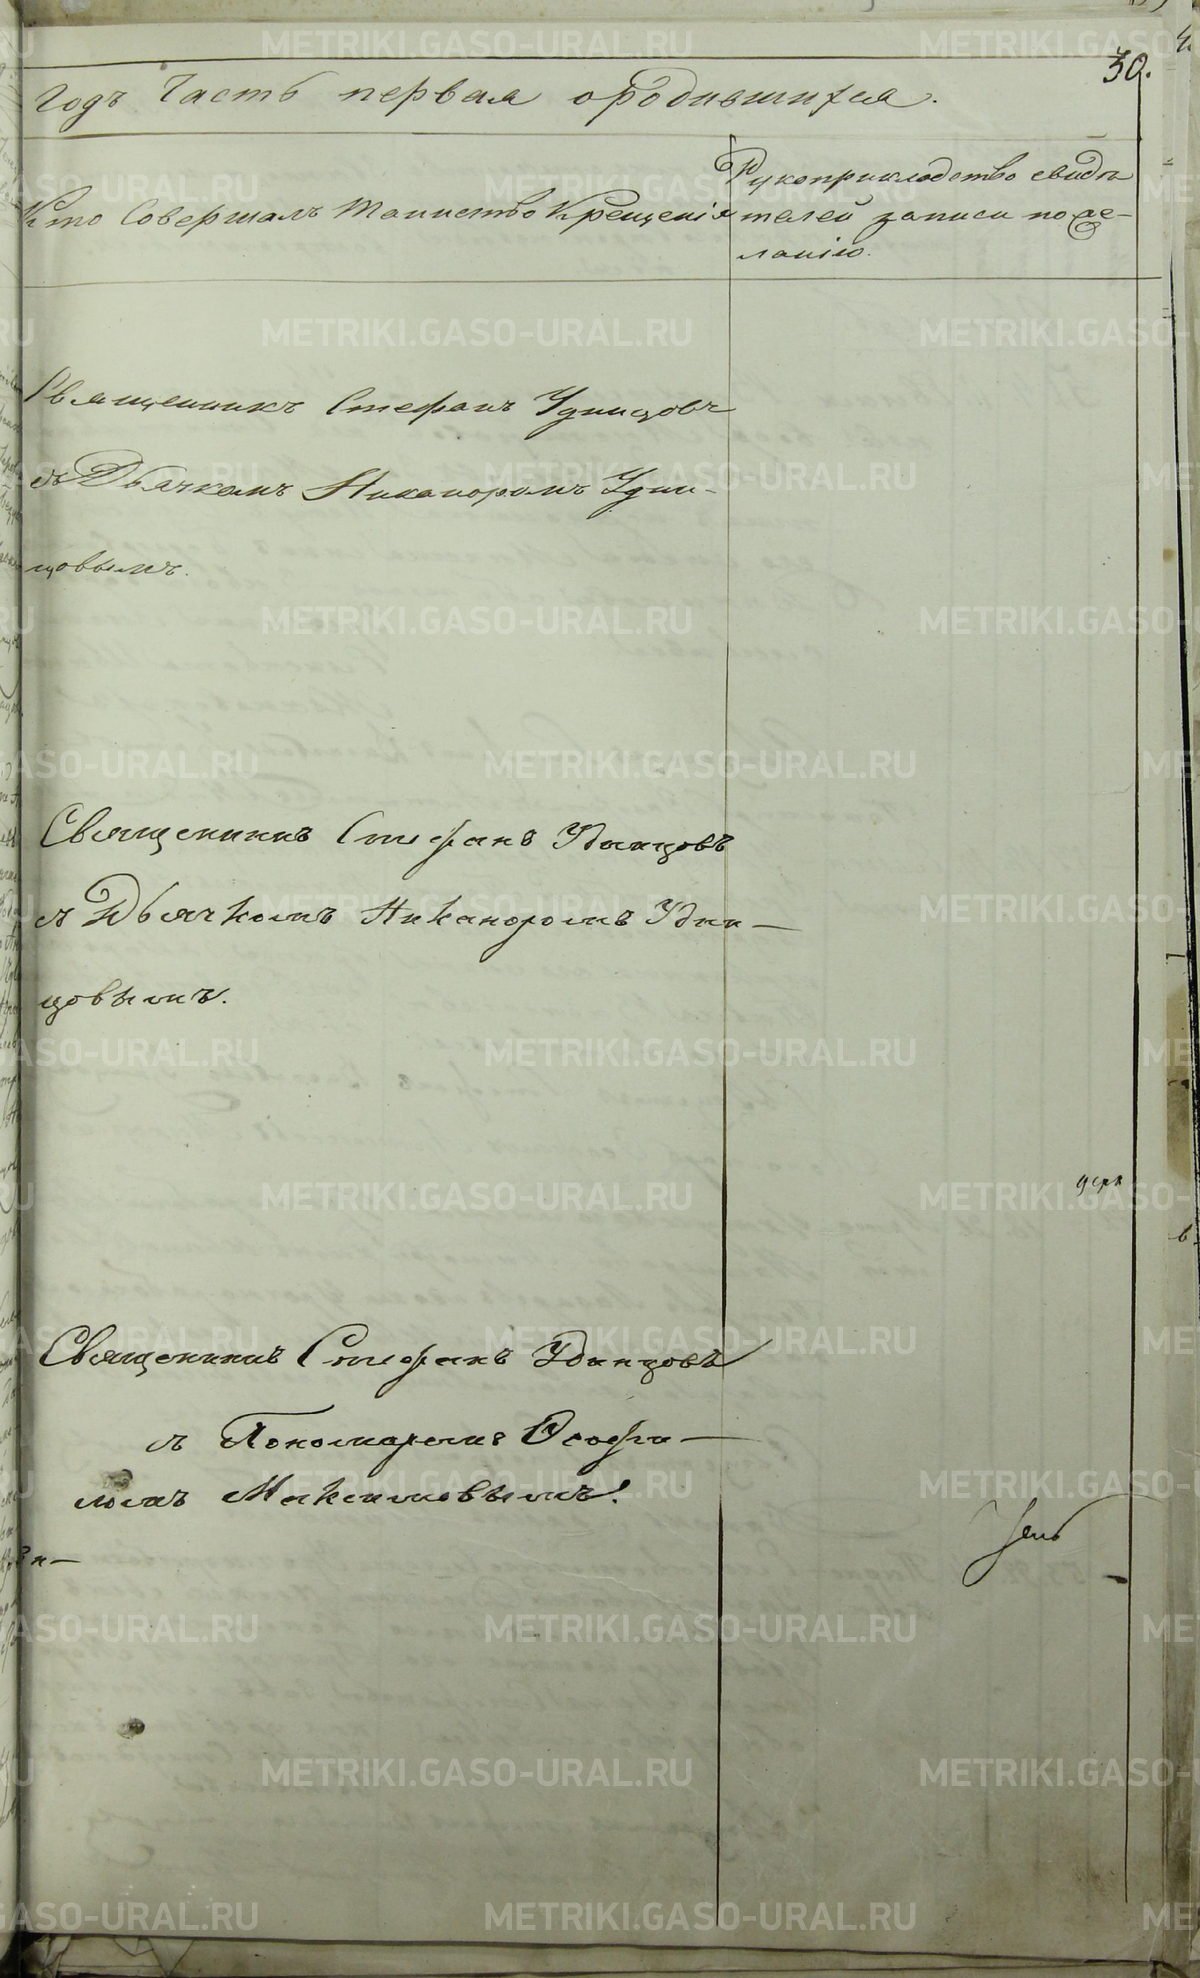 30.
Годъ Часть первая о родившихся.
Кто Совершалъ Таинство Крещенія
Рукоприкладство свидѣ
телей записи по же-
ланію.
Священникъ Стефанъ Удинцовъ
съ Дьячкомъ Никаноромъ Удин-
цовымъ.
Священникъ Стефанъ Удинцовъ
съ Дьячкомъ Никаноромъ Удин—
цовымъ.
Священникъ Стефанъ Удинцовъ
съ Пономаремъ Ѳеофи—
ломъ Максимовымъ.
METRIKI.GASO-URAL.RU